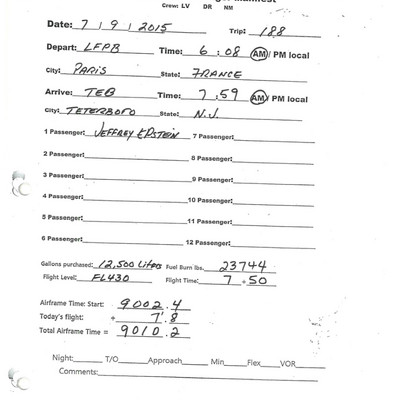 Manifest
Crew: LV DR NM
Date: 7 / 9 / 2015 Trip: 188
Depart: LFPB Time: 6:08 AM/ PM local
City: PARIS State: FRANCE
Arrive: TEB Time: 7:59 AM/ PM local
City: TETERBORO State: N.J.
1 Passenger: JEFFREY EPSTEIN 7 Passenger:
2 Passenger: 8 Passenger:
3 Passenger: 9 Passenger:
4 Passenger: 10 Passenger:
5 Passenger: 11 Passenger:
6 Passenger: 12 Passenger:
Gallons purchased: 12,500 Litres Fuel Burn lbs. 23744
Flight Level: FL430 Flight Time: 7.50
Airframe Time: Start: 9002.4
Today's flight: + 7.8
Total Airframe Time = 9010.2
Night: T/O Approach Min Flex VOR
Comments: